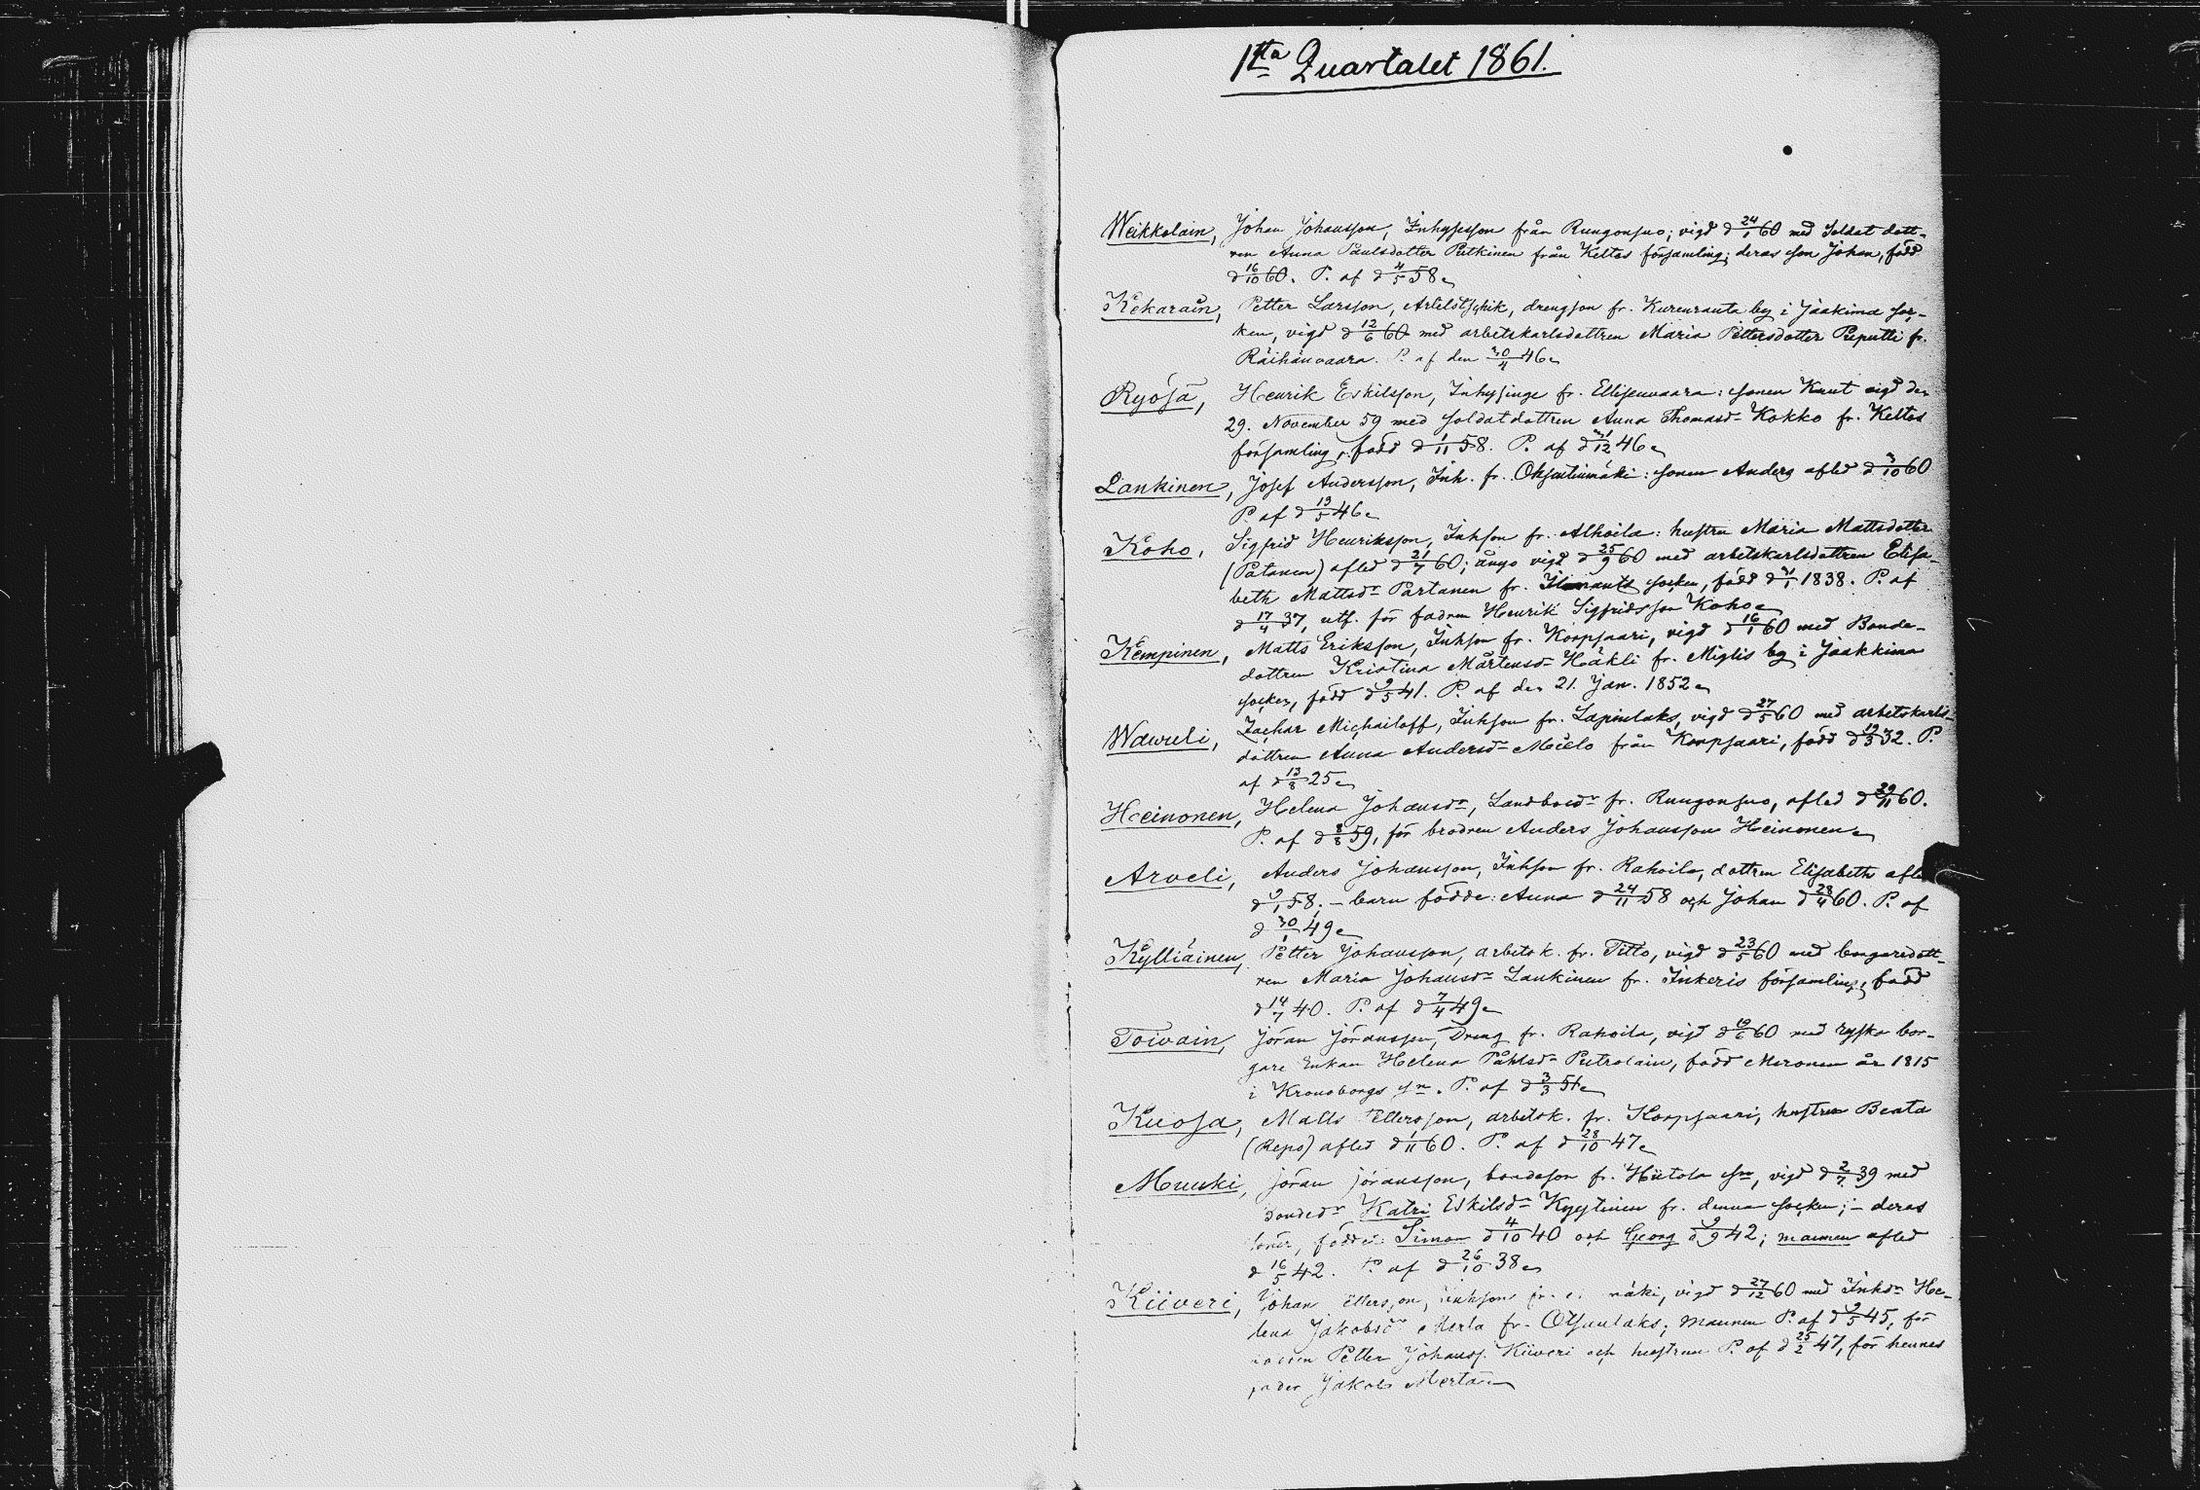 1sta Quartalet 1861.
Weikkolain, Johan Johansson, Inhysesson från Rungonsuo; vigd d 24/1 60 med Soldat dott-
ren Anna Paulsdotter Putkinen från Keltos församling; deras son Johan, född
d 16/10 60. P. af d 4/5 58
Kekarain, Petter Larsson, drengson fr. Kurenrauta by i Jaakima soc-
ken, vigd d 12/6 60 med arbetskarlsdottren Maria Pettersdotter Preputti fr.
Räihänvaara. P. af den 30/4 46
Ryösä, Henrik Eskilsson, Inhysinge fr. Ellisenvaara: sonen Knut vigd den
29. November 59 med soldatdottren Anna Thomasdr Kokko fr. Keltos
församling, född d 1/11 58. P. af d 31/12 46
Lankinen, Josef Andersson, Inh. fr. Oksentiumäki: sonen Anders afled d 3/10 60
P. af d 13/5 46
Koho, Sigfrid Henriksson, Inhson fr. Alhoila: hustru Maria Mattsdotter
(Patanen) afled d 21/7 60; ånyo vigd d 25/9 60 med arbetskarlsdottren Elisa-
beth Mattsdr Partanen fr. Ilomants socken, född d 31/1 1838. P. af
d 17/4 37, utf. för fadren Henrik Sigfridsson Koho
Kempinen, Matts Eriksson, Inhson fr. Korpsaari, vigd d 16/1 60 med Bonde-
dottren Kristina Mårtensdr Häkli fr. Miglis by i Jaakkima
socken, född d 9/5 41. P. af den 21. Jan. 1852
Wawuli, Zachar Michailoff, Inhson fr. Lapinlaks, vigd d 27/5 60 med arbetskarls-
dottren Anna Andersdr Mielo från Korpsaari, född d 19/3 32. P.
af d 13/8 25
Heinonen, Helena Johansdr, Landbodr fr. Rungonsuo, afled d 29/11 60.
P. af d 8/8 59, för brodren Anders Johansson Heinonen
Arveli, Anders Johansson, Inhson fr. Rahoila, dottren Elisabeth afled
d 9/1 58. – barn födde: Anna d 24/11 58 och Johan d 28/4 60. P. af
d 30/1 49
Kylliäinen, Petter Johansson, arbetsk. fr. Titto, vigd d 23/5 60 med borgaredott-
ren Maria Johansdr Lankinen fr. Inkeris församling, född
d 14/7 40. P. af d 7/4 49
Toivain, Jöran Jöransson, Dreng fr. Rahoila, vigd d 19/6 60 med ryska bor-
gare Enkan Helena Påhlsdr Putrolain, född Meronen år 1815
i Kronoborgs sn. P. af d 3/3 51
Kuosa, Matts Pettersson, arbetsk. fr. Korpsaari, hustrun Beata
(Repo) afled d 1/11 60. P. af d 28/10 47
Muuki, Jöran Jöransson, bondeson fr. Hiitola sn, vigd d 2/7 39 med
bondedr Katri Eskilsdr Kyytinen fr. denna socken; – deras
söner, födde: Simon d 4/10 40 och Georg d 9/9 42; mannen afled
d 16/5 42. P. af d 26/10 38
Kiiveri, Johan Pettersson, Inhson fr. mäki, vigd d 27/12 60 med Inhdr He-
lena Jakobsdr Merta fr. Otsanlaks; mannen P. af d 9/5 45, för
Petter Johanss. Kiiveri och hustrun P. af d 25/2 47, för hennes
fader Jakob Merta